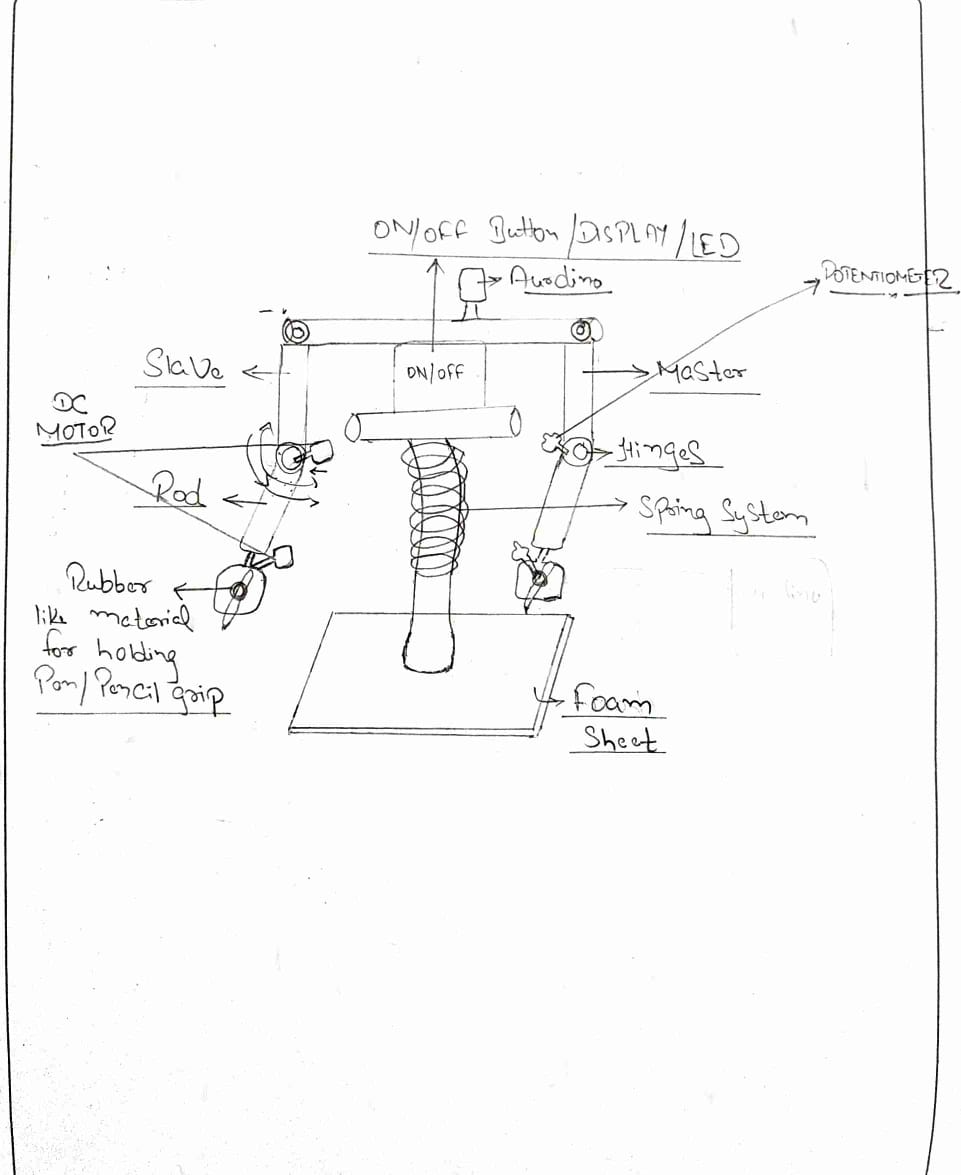 ON/OFF Button/DISPLAY/LED
Aurdino
POTENTIOMETER
Slave
ON/OFF
Master
DC
MOTOR
Hinges
Rod
Spring System
Rubber
like material
for holding
Pen/Pencil grip
Foam
Sheet